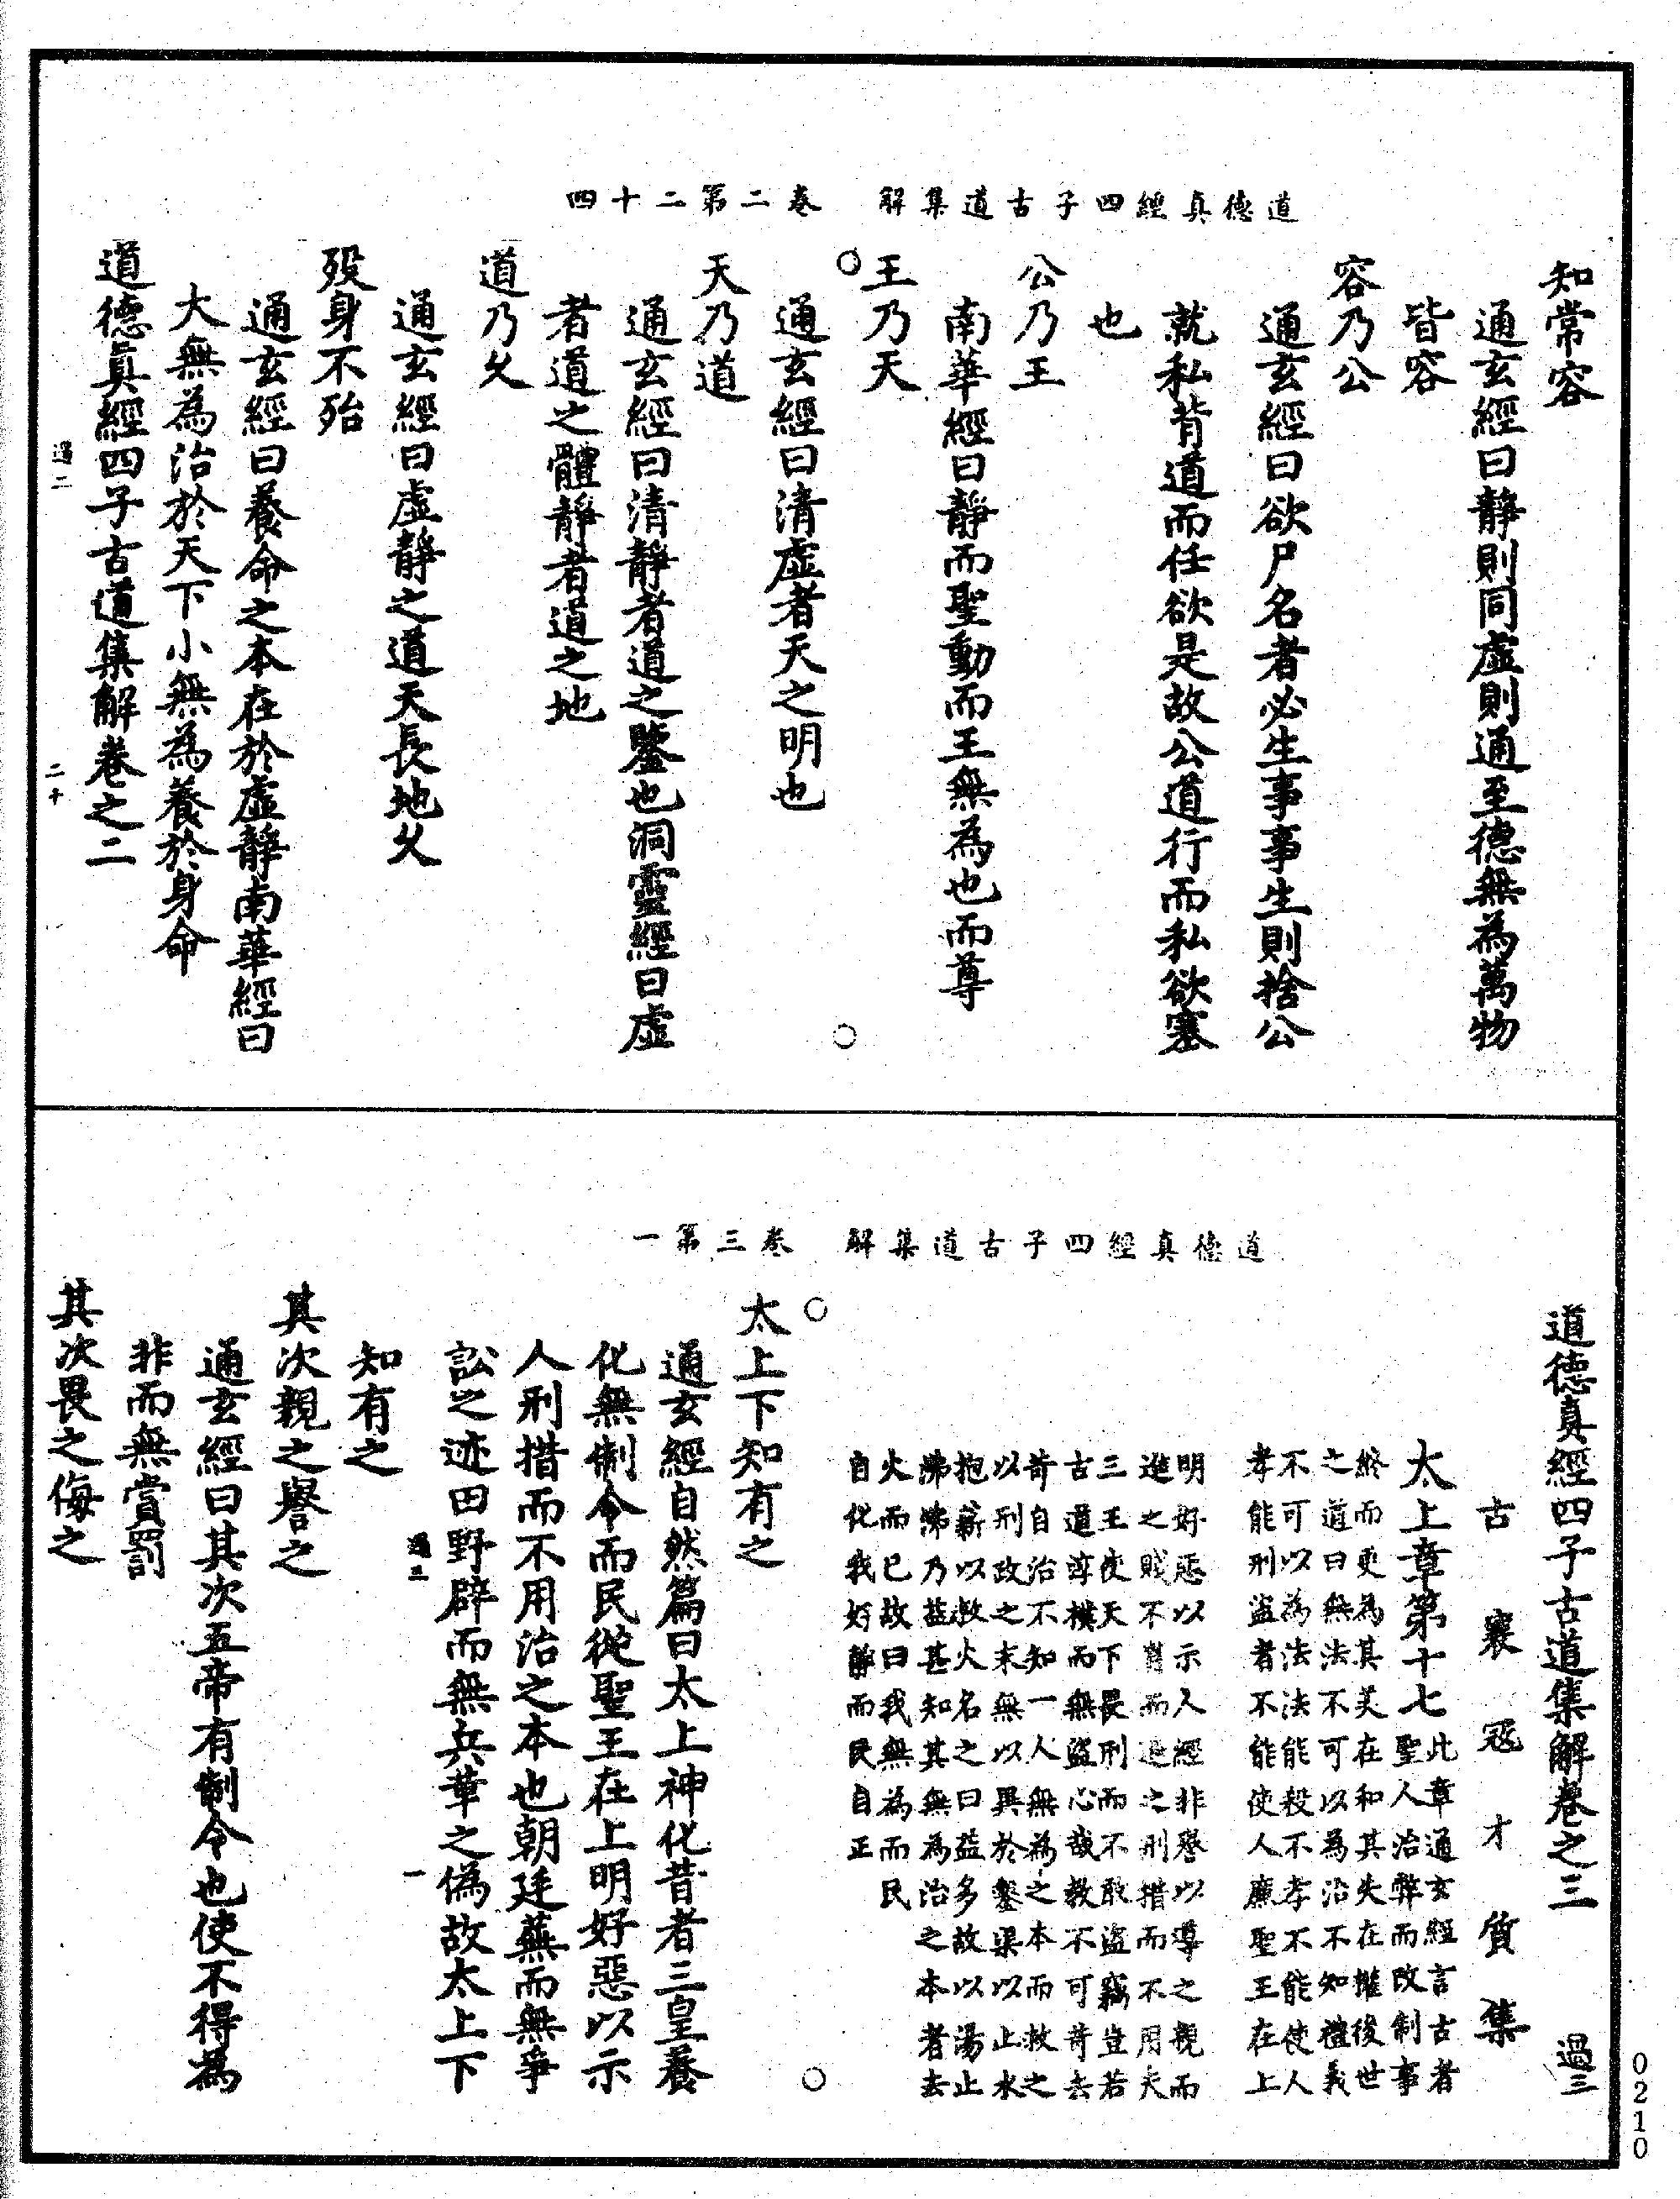 道德真經四子古道集解　卷二第二十四
知常容
通玄經曰靜則同虛則通至德無為萬物
皆容
容乃公
通玄經曰欲尸名者必生事事生則捨公
就私背道而任欲是故公道行而私欲塞
也
公乃王
南華經曰靜而聖動而王無為也而尊
王乃天
通玄經曰清虛者天之明也
天乃道
通玄經曰清靜者道之鑒也洞靈經曰虛
者道之體靜者道之地
道乃久
通玄經曰虛靜之道天長地久
歿身不殆
通玄經曰養命之本在於虛靜南華經曰
大無為治於天下小無為養於身命
道德眞經四子古道集解卷之二
過二
二十
道德真經四子古道集解　卷三第一
道德真經四子古道集解卷之三
過三
古襄寇才質集
太上章第十七
此章通玄經言古者
聖人治弊而改制事
終而更為其美在和其失在權後世
之道曰無法不可以為治不知禮義
不可以為法法能殺不孝不能使人
孝能刑盜者不能使人廉聖王在上
明好惡以示人經非譽以導之親而
進之賤不肖而退之刑措而不用夫
三王使天下畏刑而不敢盜竊豈若
古道淳樸而無盜心哉教不可苛去
苛自治不知一人無為之本而救之
以刑政之末無以異於鑿渠以止水
抱薪以救火名之曰益多故以湯止
沸沸乃益甚知其無為治之本者去
火而已故曰我無為而民
自化我好靜而民自正
太上下知有之
通玄經自然篇曰太上神化昔者三皇養
化無制令而民從聖王在上明好惡以示
人刑措而不用治之本也朝廷蕪而無爭
訟之迹田野辟而無兵革之偽故太上下
知有之
過三
一
其次親之譽之
通玄經曰其次五帝有制令也使不得為
非而無賞罰
其次畏之侮之
0210